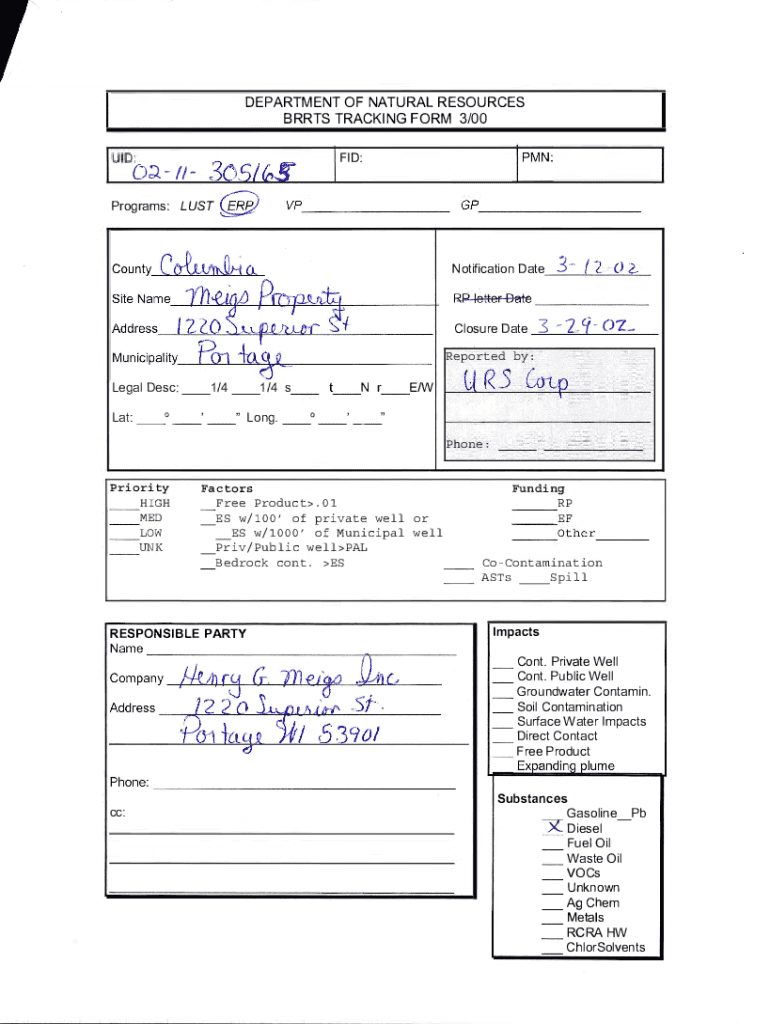 DEPARTMENT OF NATURAL RESOURCES
BRRTS TRACKING FORM 3/00
UID: 02-11- 305165 FID: PMN:
Programs: LUST ERP VP GP
County Columbia
Site Name Meigs Property
Address 1220 Superior St
Municipality Portage
Legal Desc: ____1/4 ____1/4 s____ t____N r____E/W
Lat: ____° ____' ____" Long. ____° ____' ____"
Notification Date 3-12-02
RP letter Date
Closure Date 3-29-02
Reported by:
URS Corp
Phone: _____ _____
Priority
____HIGH
____MED
____LOW
____UNK
Factors
__Free Product>.01
__ES w/100' of private well or
__ES w/1000' of Municipal well
__Priv/Public well>PAL
__Bedrock cont. >ES
Funding
______RP
______EF
______Other_______
____ Co-Contamination
____ ASTs ____Spill
RESPONSIBLE PARTY
Name
Company Henry G. Meigs Inc
Address 1220 Superior St.
Portage WI 53901
Phone:
cc:
Impacts
___ Cont. Private Well
___ Cont. Public Well
___ Groundwater Contamin.
___ Soil Contamination
___ Surface Water Impacts
___ Direct Contact
___ Free Product
___ Expanding plume
Substances
___ Gasoline__Pb
X Diesel
___ Fuel Oil
___ Waste Oil
___ VOCs
___ Unknown
___ Ag Chem
___ Metals
___ RCRA HW
___ ChlorSolvents